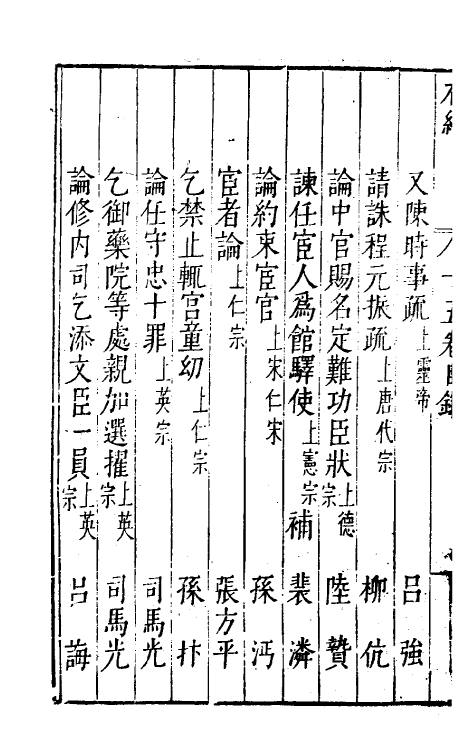 又陳時事疏上靈帝 吕強
請誅程元振疏上唐代宗 柳伉
論中官賜名定難功臣狀上德宗 陸贄
諫任宦人爲館驛使上憲宗補 裴潾
論約束宦官上宋仁宋 孫沔
宦者論上仁宗 張方平
乞禁止輒宫童幼上仁宗 孫抃
論任守忠十罪上英宗 司馬光
乞御藥院等處親加選擢上英宗 司馬光
論修内司乞添文臣一員上英宗 吕誨